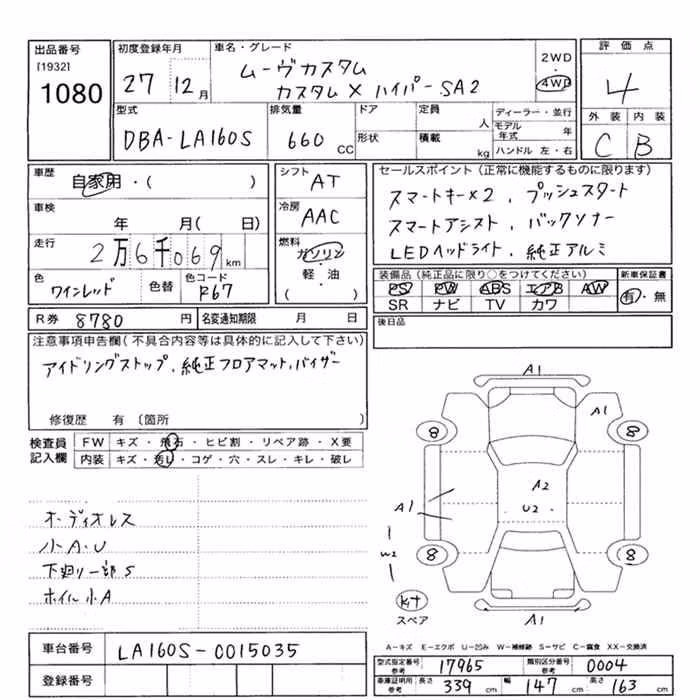 出品番号
[1932]
1080
初度登録年月
27 12月
車名・グレード
ムーヴカスタム
カスタム X ハイパーSA2
2WD
・
4WD
評価点
4
外装 内装
C B
型式
DBA-LA160S
排気量
660 CC
ドア
形状
定員 人
積載 kg
ディーラー・並行
モデル年式 年
ハンドル 左・右
車歴
自家用・( )
車検
年 月( 日)
走行
2万6千069km
色
ワインレッド
色替
色コード
R67
シフト
AT
冷房
AAC
燃料
ガソリン
・
軽・油
( )
セールスポイント(正常に機能するものに限ります)
スマートキー×2、プッシュスタート
スマートアシスト、バックソナー
LEDヘッドライト、純正アルミ
装備品(純正品に限り○をつけてください)
PS PW ABS エアB AW
SR ナビ TV カワ
新車保証書
有・無
R券 8780 円
名変通知期限 月 日
後日品
注意事項申告欄(不具合内容等は具体的に記入して下さい)
アイドリングストップ、純正フロアマット、バイザー
修復歴 有 〔箇所 〕
検査員
記入欄
FW キズ・飛石・ヒビ割・リペア跡・X要
内装 キズ・汚レ・コゲ・穴・スレ・キレ・破レ
オーディオレス
小A・U
下廻り一部S
ホイル小A
A1
A1
8 8
A2
U2
A1
W2
8 8
キット
スペア
A1
A-キズ E-エクボ U-凹み W-補修跡 S-サビ C-腐食 XX-交換済
車台番号
LA160S-0015035
登録番号
型式指定番号
参考
17965
類別区分番号
参考
0004
車庫証明用
参考
長さ 339 cm 幅 147 cm 高さ 163 cm